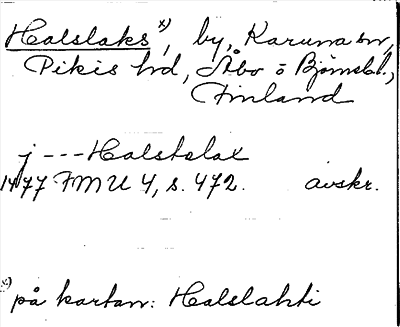 Halslaks x), by, Karuna sn,
Pikis hd, Åbo o Björnebl.,
Finland
j --- Halstelax
1477 FMU 4, s. 472. avskr.
x) på kartan: Halslahti